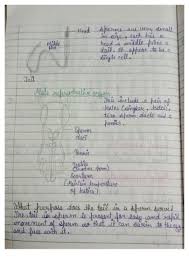 Head
Middle piece
Tail
Sperms are very small
in size, each has a
head a middle piece a
tail. It appear to be a
single cell.
Male reproductive organ
This include a pair of
testes (singular, testis),
two sperm ducts and a
penis.
Sperm
duct
Penis
Testis
Scrotum
(Maintain temperature
of testes)
What purpose does the tail in a sperm serve?
The tail in sperm is present for easy and rapid
movement of sperm so that it can swim to the egg
and fuse with it.